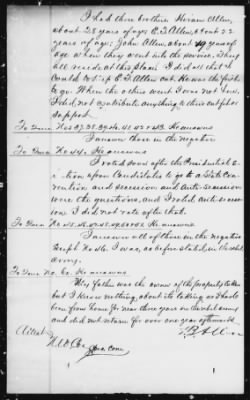 I had three brothers Hiram Allen,
about 28 years of age, C. T. Allen, about 22
years of age, John Allen, about 19 years of
age when they went into the service. They
all reside at this place. I did all that I
could to stop C. T. Allen out. He was the first
to go. When the others went I was not here,
I did not contribute anything to their outfit or
support.
To Ques. Nos 37. 38. 39. 40. 41. 42 & 43. He answers
I answer them in the negative
To Ques. No 44. He answers
I voted soon after the Presidential
election upon Candidates to go to a State Con-
vention and secession and anti-secession
were the questions, and I voted anti-secess-
ion I did not vote after that.
He answers
I answer all of them in the negative
except No 46. I was, as before stated, in
Army.
To Ques. No. 60. He answers
My father was the owner of the property taken
but I know nothing, about its taking as I had
been from home for near three years in the army
and did not return for over one year afterwards
Attest
Com.
Allen